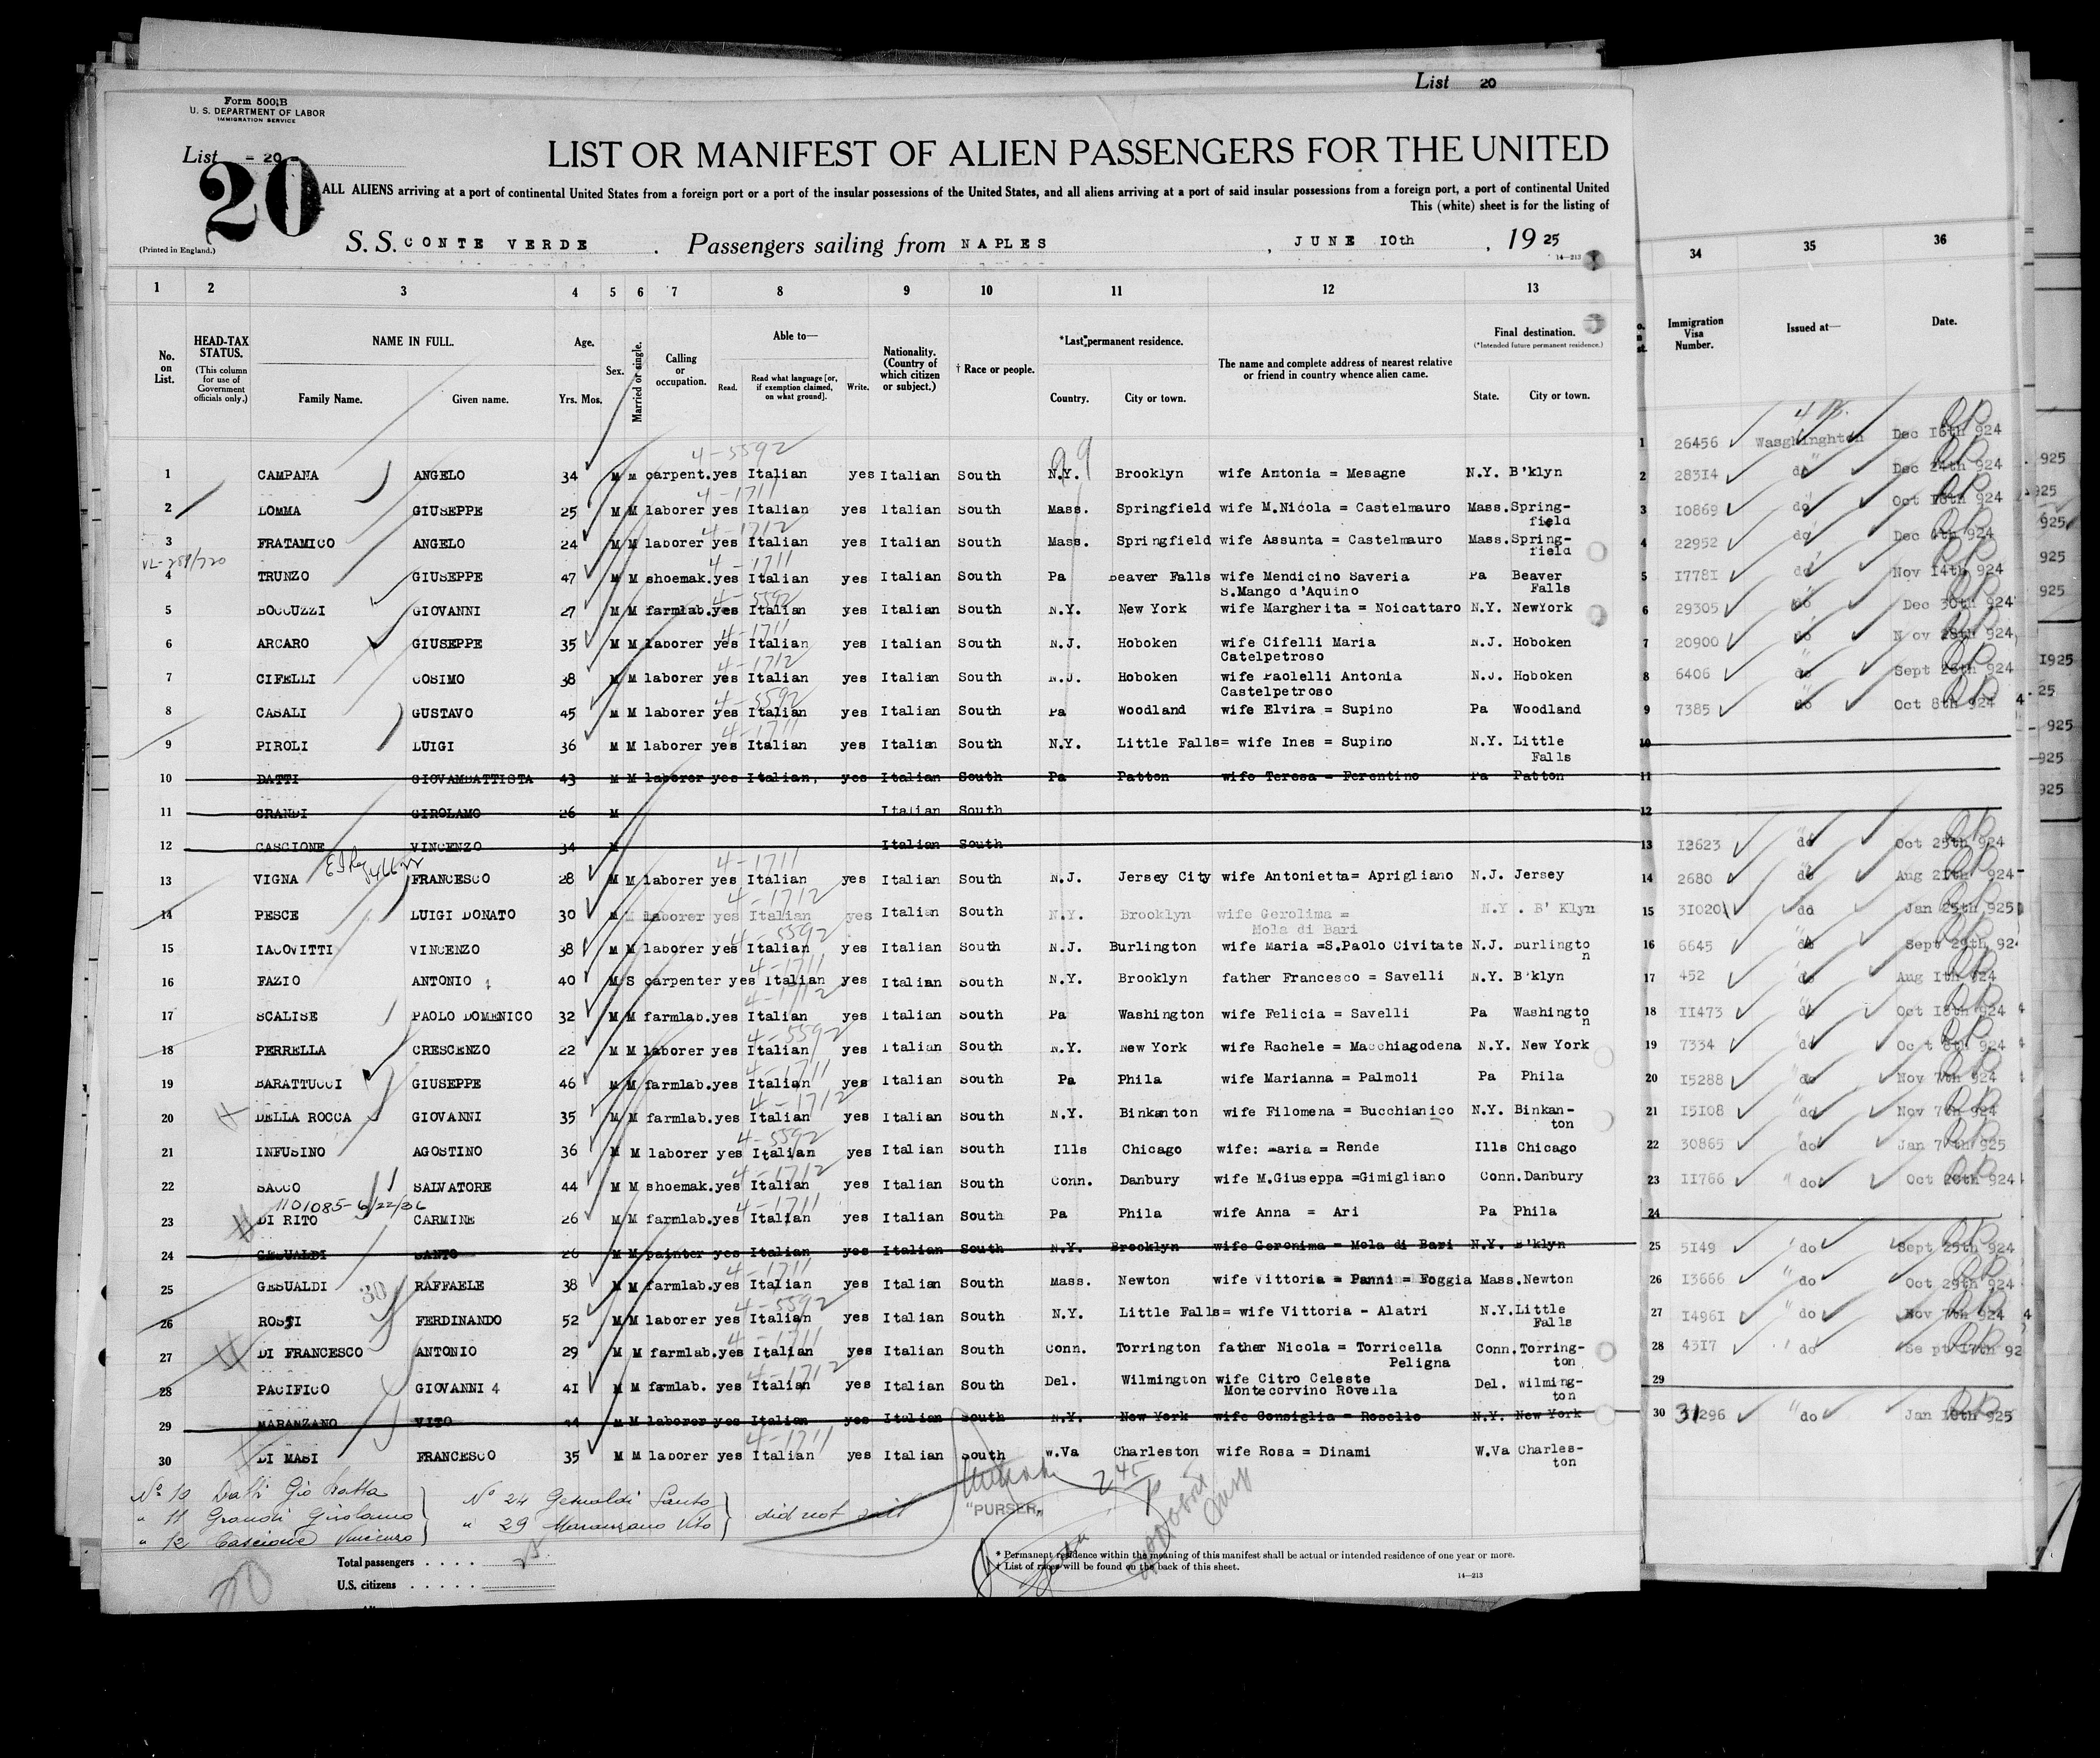 List 20
Form 500 B
U. S. DEPARTMENT OF LABOR
IMMIGRATION SERVICE
List = 20 =
20
LIST OR MANIFEST OF ALIEN PASSENGERS FOR THE UNITED
ALL ALIENS arriving at a port of continental United States from a foreign port or a port of the insular possessions of the United States, and all aliens arriving at a port of said insular possessions from a foreign port, a port of continental United
This (white) sheet is for the listing of
(Printed in England.)
S. S. CONTE VERDE . Passengers sailing from NAPLES , JUNE 10th , 19 25
14—213
1 2 3 4 5 6 7 8 9 10 11 12 13 34 35 36
No. on List.
HEAD-TAX STATUS.
(This column for use of Government officials only.)
NAME IN FULL.
Family Name. Given name.
Age.
Yrs. Mos.
Sex.
Married or single.
Calling or occupation.
Able to—
Read. Read what language [or, if exemption claimed, on what ground]. Write.
Nationality. (Country of which citizen or subject.)
† Race or people.
*Last permanent residence.
Country. City or town.
The name and complete address of nearest relative or friend in country whence alien came.
Final destination.
(*Intended future permanent residence.)
State. City or town.
Immigration Visa Number.
Issued at—
Date.
4-5592 99
1 CAMPANA ANGELO 34 M M carpent. yes Italian yes Italian South N.Y. Brooklyn wife Antonia = Mesagne N.Y. B'klyn
4-1711
2 LOMMA GIUSEPPE 25 M M laborer yes Italian yes Italian South Mass. Springfield wife M.Nicola = Castelmauro Mass. Spring-
field
4-1712
3 FRATAMICO ANGELO 24 M M laborer yes Italian yes Italian South Mass. Springfield wife Assunta = Castelmauro Mass. Spring-
field
4-1711
4 TRUNZO GIUSEPPE 47 M M shoemak. yes Italian yes Italian South Pa Beaver Falls wife Mendicino Saveria Pa Beaver
S.Mango d'Aquino Falls
4-5592
5 BOCCUZZI GIOVANNI 27 M M farmlab. yes Italian yes Italian South N.Y. New York wife Margherita = Noicattaro N.Y. NewYork
4-1711
6 ARCARO GIUSEPPE 35 M M laborer yes Italian yes Italian South N.J. Hoboken wife Cifelli Maria N.J. Hoboken
Catelpetroso
4-1712
7 CIFELLI COSIMO 38 M M laborer yes Italian yes Italian South N.J. Hoboken wife Paolelli Antonia N.J. Hoboken
Castelpetroso
4-5592
8 CASALI GUSTAVO 45 M M laborer yes Italian yes Italian South Pa Woodland wife Elvira = Supino Pa Woodland
4-1711
9 PIROLI LUIGI 36 M M laborer yes Italian yes Italian South N.Y. Little Falls= wife Ines = Supino N.Y. Little
Falls
10 DATTI GIOVAMBATTISTA 43 M M laborer yes Italian, yes Italian South Pa Patton wife Teresa = Ferentino Pa Patton
11 GRANDI GIROLAMO 26 M Italian South
12 CASCIONE VINCENZO 34 M Italian South
4-1711
13 VIGNA FRANCESCO 28 M M laborer yes Italian yes Italian South N.J. Jersey City wife Antonietta= Aprigliano N.J. Jersey
4-1712
14 PESCE LUIGI DONATO 30 M M laborer yes Italian yes Italian South N.Y. Brooklyn wife Gerolima = N.Y. B' Klyn
Mola di Bari
4-5592
15 IACOVITTI VINCENZO 38 M M laborer yes Italian yes Italian South N.J. Burlington wife Maria =S.Paolo Civitate N.J. Burlingto
n
4-1711
16 FAZIO ANTONIO 40 M S carpenter yes Italian yes Italian South N.Y. Brooklyn father Francesco = Savelli N.Y. B'klyn
4-1712
17 SCALISE PAOLO DOMENICO 32 M M farmlab. yes Italian yes Italian South Pa Washington wife Felicia = Savelli Pa Washingto
n
4-5592
18 PERRELLA CRESCENZO 22 M M laborer yes Italian yes Italian South N.Y. New York wife Rachele = Macchiagodena N.Y. New York
4-1711
19 BARATTUCCI GIUSEPPE 46 M M farmlab. yes Italian yes Italian South Pa Phila wife Marianna = Palmoli Pa Phila
4-1712
20 DELLA ROCCA GIOVANNI 35 M M farmlab. yes Italian yes Italian South N.Y. Binkanton wife Filomena = Bucchianico N.Y. Binkan-
ton
4-5592
21 INFUSINO AGOSTINO 36 M M laborer yes Italian yes Italian South Ills Chicago wife: Maria = Rende Ills Chicago
4-1712
22 SACCO SALVATORE 44 M M shoemak. yes Italian yes Italian South Conn. Danbury wife M.Giuseppa =Gimigliano Conn. Danbury
1101085-6/22/36 4-1711
23 DI RITO CARMINE 26 M M farmlab. yes Italian yes Italian South Pa Phila wife Anna = Ari Pa Phila
24 GESUALDI SANTO 26 M M painter yes Italian yes Italian South N.Y. Brooklyn wife Geronima = Mola di Bari N.Y. B'klyn
4-1711
25 GESUALDI RAFFAELE 38 M M farmlab. yes Italian yes Italian South Mass. Newton wife Vittoria = Panni = Foggia Mass. Newton
30 4-5592
26 ROSSI FERDINANDO 52 M M laborer yes Italian yes Italian South N.Y. Little Falls= wife Vittoria - Alatri N.Y. Little
Falls
4-1711
27 DI FRANCESCO ANTONIO 29 M M farmlab. yes Italian yes Italian South Conn. Torrington father Nicola = Torricella Conn. Torring-
Peligna ton
4-1712
28 PACIFICO GIOVANNI 4 41 M M famlab. yes Italian yes Italian South Del. Wilmington wife Citro Celeste Del. Wilming-
Montecorvino Rovella ton
29 MARANZANO VITO 44 M M laborer yes Italian yes Italian South N.Y. New York wife Consiglia = Rosello N.Y. New York
4-1711
30 DI MASI FRANCESCO 35 M M laborer yes Italian yes Italian South W.Va Charleston wife Rosa = Dinami W.Va Charles-
ton
1 26456 Wasghinghton Dec 16th 924
2 28314 do Dec 24th 924
3 10869 do Oct 18th 924
4 22952 do Dec 4th 924
5 17781 do Nov 14th 924
6 29305 do Dec 30th 924
7 20900 do Nov 28th 924
8 6406 do Sept 26th 924
9 7385 do Oct 8th 924
10
11
12
13 12623 do Oct 25th 924
14 2680 do Aug 21th 924
15 31020 do Jan 25th 925
16 6645 do Sept 29th 924
17 452 do Aug 1th 924
18 11473 do Oct 18th 924
19 7334 do Oct 8th 924
20 15288 do Nov 7th 924
21 15108 do Nov 7th 924
22 30865 do Jan 7th 925
23 11766 do Oct 20th 924
24
25 5149 do Sept 25th 924
26 13666 do Oct 29th 924
27 14961 do Nov 7th 924
28 4317 do Sept 17th 92
29
30 31296 do Jan 10th 925
No 10 Datti Gio Batta
" 11 Grandi Girolamo
" 12 Cascione Vincenzo
No 24 Gesualdi Santo
" 29 Maranzano Vito
did not sail
"PURSER"
Total passengers . . . . 25
U.S. citizens . . . . .
* Permanent residence within the meaning of this manifest shall be actual or intended residence of one year or more.
† List of races will be found on the back of this sheet.
14—213